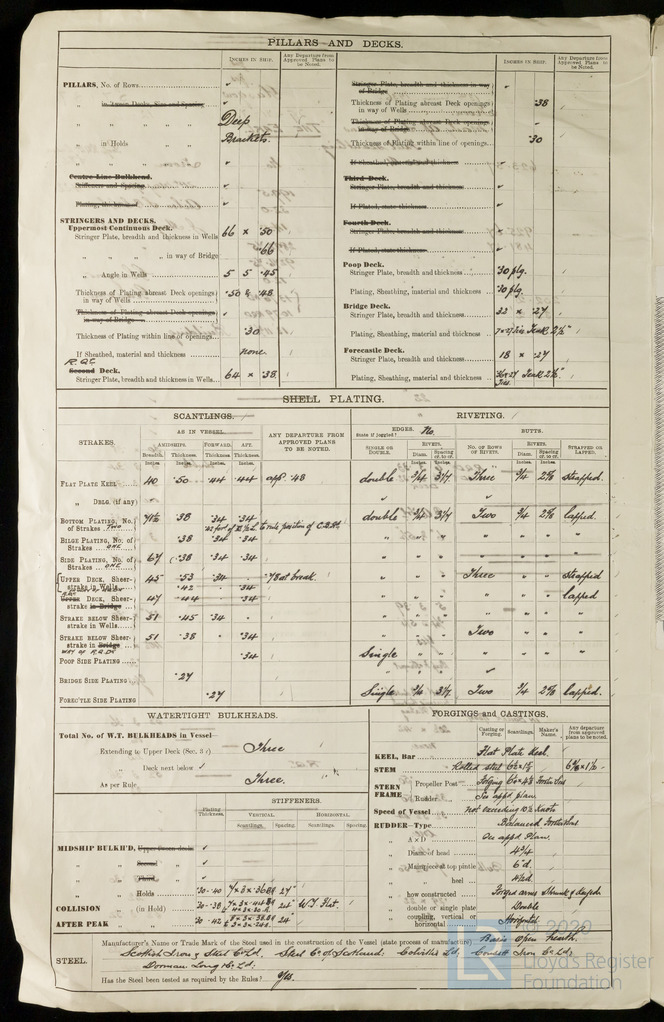 PILLARS AND DECKS.
INCHES IN SHIP. Any Departure from Approved Plans to be Noted.
PILLARS, No. of Rows
„ in 'Tween Decks, Size and Spacing
„ „ „ Deep
„ in Holds Brackets.
„ „ „
Centre Line Bulkhead.
Stiffeners and Spacing
Plating, thickness
STRINGERS AND DECKS.
Uppermost Continuous Deck.
Stringer Plate, breadth and thickness in Wells 66 × .50
„ „ „ „ in way of Bridge .66
„ Angle in Wells 5 5 .45
Thickness of Plating abreast Deck openings in way of Wells .50 & .48
Thickness of Plating abreast Deck openings in way of Bridge
Thickness of Plating within line of openings .30
If Sheathed, material and thickness none
R.QR
Second Deck.
Stringer Plate, breadth and thickness in Wells 64 × .38
INCHES IN SHIP. Any Departure from Approved Plans to be Noted.
Stringer Plate, breadth and thickness in way of Bridge
Thickness of Plating abreast Deck openings in way of Wells .38
Thickness of Plating abreast Deck openings in way of Bridge
Thickness of Plating within line of openings .30
If Sheathed, material and thickness
Third Deck.
Stringer Plate, breadth and thickness
If Plated, state thickness
Fourth Deck.
Stringer Plate, breadth and thickness
If Plated, state thickness
Poop Deck.
Stringer Plate, breadth and thickness .30 plg.
Plating, Sheathing, material and thickness .30 plg.
Bridge Deck.
Stringer Plate, breadth and thickness 33 × .27
Plating, Sheathing, material and thickness Teak 2½"
Forecastle Deck.
Stringer Plate, breadth and thickness 18 × .27
Plating, Sheathing, material and thickness Teak 2½"
SHELL PLATING.
SCANTLINGS. RIVETING.
STRAKES. AS IN VESSEL. ANY DEPARTURE FROM APPROVED PLANS TO BE NOTED. EDGES. No. State if joggled? BUTTS.
AMIDSHIPS. FORWARD. AFT. SINGLE OR DOUBLE. RIVETS. NO. OF ROWS OF RIVETS. RIVETS. STRAPPED OR LAPPED.
Breadth. Thickness. Thickness. Thickness. Diam. Spacing cr. to cr. Diam. Spacing cr. to cr.
Inches. Inches. Inches. Inches. Inches. Inches. Inches. Inches.
FLAT PLATE KEEL 40 .50 .44 .44 app. .48 double ¾ Three ¾ strapped.
„ DBLG. (if any)
BOTTOM PLATING, No. of Strakes TWO .38 .34 .34 double ¾ Two ¾ lapped.
BILGE PLATING, No. of Strakes ONE .38 .34 .34 „ „ „ „ „ „ „
SIDE PLATING, No. of Strakes ONE 67 .38 .34 .34 „ „ „ „ „ „ „
UPPER DECK, Sheerstrake in Wells 45 .53 .34 .78 at break. „ „ „ Three „ „ strapped
.42 .34
UPPER DECK, Sheerstrake in Bridge 47 .44 .34 „ „ „ „ „ „ lapped
STRAKE BELOW SHEERstrake in Wells 51 .45 .34 „ „ „ „ „ „
STRAKE BELOW SHEERstrake in Bridge 51 .38 .34 „ „ „ Two „ „ „
WAY OF R.Q.D.
POOP SIDE PLATING .34 Single „ „
BRIDGE SIDE PLATING .27
FOREC'TLE SIDE PLATING .27 Single ¾ Two ¾ lapped.
WATERTIGHT BULKHEADS.
Total No. of W.T. BULKHEADS in Vessel—
Extending to Upper Deck Three
„ Deck next below
As per Rule Three.
STIFFENERS.
Plating Thickness. VERTICAL. HORIZONTAL.
Scantlings. Spacing. Scantlings. Spacing.
MIDSHIP BULKH'D, Upper tween deck
„ „ Second „
„ „ Third „
„ „ Holds .30-.40 27"
COLLISION „ (in Hold) .30-.38 24" W.T. Flat.
AFTER PEAK „ „ .30-.42 24"
FORGINGS AND CASTINGS.
Casting or Forging. Scantlings. Maker's Name. Any departure from approved plans to be noted.
KEEL, Bar Flat Plate Keel.
STEM Rolled steel
STERN FRAME Propeller Post Forging
„ Rudder „ See app'd plan.
Speed of Vessel not exceeding 10½ Knots
RUDDER—Type Balanced
„ A × D On app'd Plan.
„ Diam. of head 4¾
„ Mainpiece at top pintle
„ „ heel
„ how constructed Forged arms Shrunk & keyed
„ double or single plate Double
„ coupling, vertical or horizontal Horizontal
STEEL. Manufacturer's Name or Trade Mark of the Steel used in the construction of the Vessel (state process of manufacture) Basic Open hearth.
Scottish Iron & Steel Co Ld, Steel Co of Scotland. Colvilles Ld, Consett Iron Co Ld,
Dorman Long & Co Ld.
Has the Steel been tested as required by the Rules? Yes.
© 2020
LR Lloyd's Register
Foundation